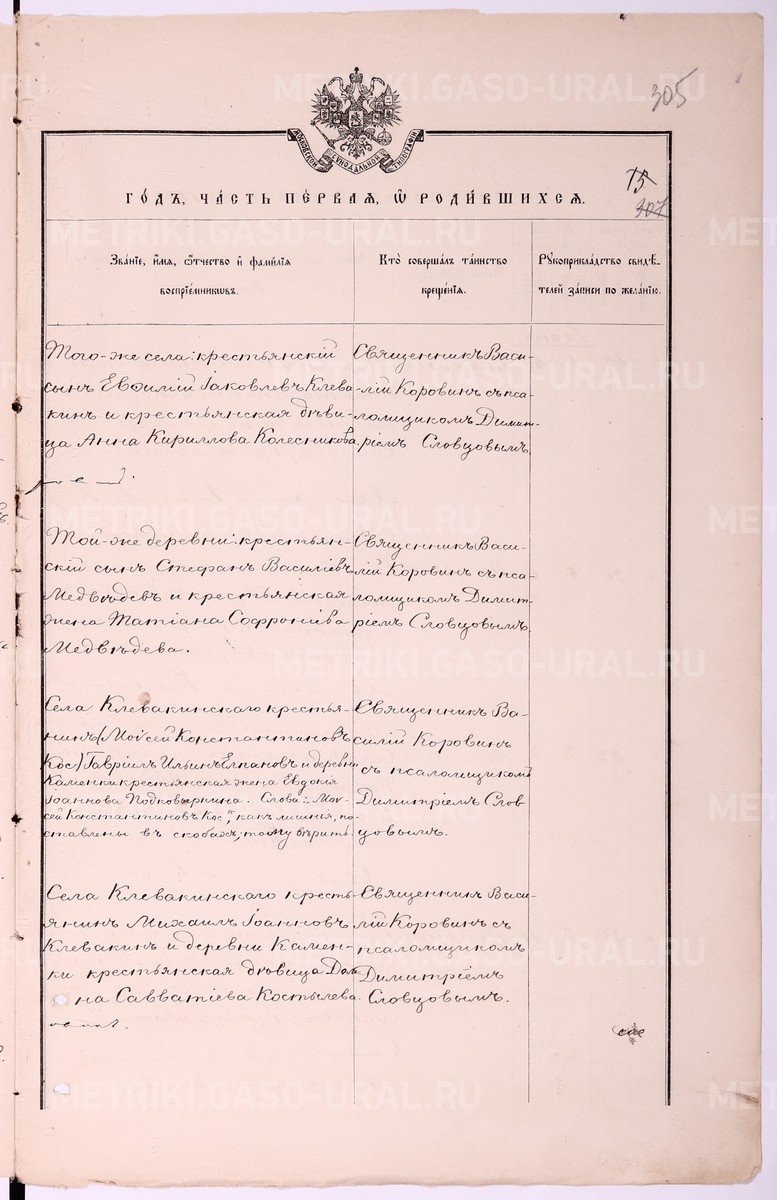 305
МОСКОВСКОЙ СУНОДАЛЬНОЙ ТИПОГРАФІИ
15
307
ГО́ДЪ, ЧА́СТЬ ПЕ́РВАЯ, Ѿ РОДИ́ВШИХСЯ.
Зва́нїе, и́мя, ѻ҆́тчество и҆ фами́лїя
воспрїе́мникѡвъ.
Кто̀ соверша́лъ та́инство
креще́нїя.
Рꙋкоприкла́дство свидѣ́-
телей за́писи по жела́нїю.
Того-же села: крестьянскій
сынъ Евѳилій Іаковлевъ Клева
кинъ и крестьянская дѣви-
ца Анна Кириллова Колесникова
Священникъ Васи-
-лій Коровинъ съ пса-
ломщикомъ Димит-
ріемъ Словцовымъ.
Той-же деревни: крестьян-
скій сынъ Стефанъ Василіевъ
Медвѣдевъ и крестьянская
жена Татіана Софроніева
Медвѣдева.
Священникъ Васи-
лій Коровинъ съ пса-
ломщикомъ Димит-
ріемъ Словцовымъ.
Села Клевакинскаго крестья-
нинъ (Моѵсей Константиновъ
Кос) Гавріилъ Ильинъ Елпановъ и деревни
Каменки крестьянская жена Евдокія
Іоаннова Подковыркина. Слова: „Моѵ-
сей Константиновъ Кос", какъ лишнія, по-
ставлены въ скобахъ; тому вѣрить.
Священникъ Ва-
силій Коровинъ
съ псаломщикомъ
Димитріемъ Слов-
цовымъ.
Села Клевакинскаго кресть-
янинъ Михаилъ Іоанновъ
Клевакинъ и деревни Камен-
ки крестьянская дѣвица Дом
на Савватіева Костылева.
Священникъ Васи-
лій Коровинъ съ
псаломщикомъ
Димитріемъ
Словцовымъ.
METRIKI.GASO-URAL.RU